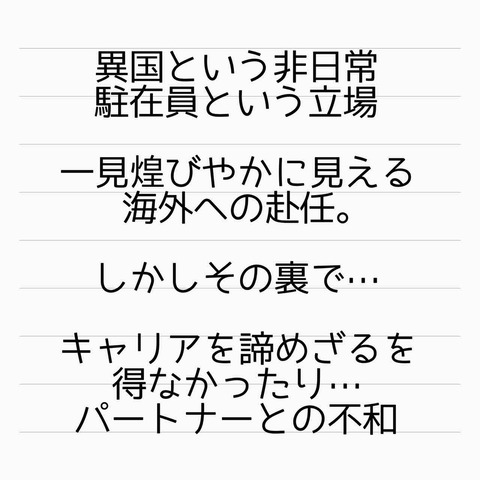 異国という非日常
駐在員という立場
一見煌びやかに見える
海外への赴任。
しかしその裏で…
キャリアを諦めざるを
得なかったり…
パートナーとの不和